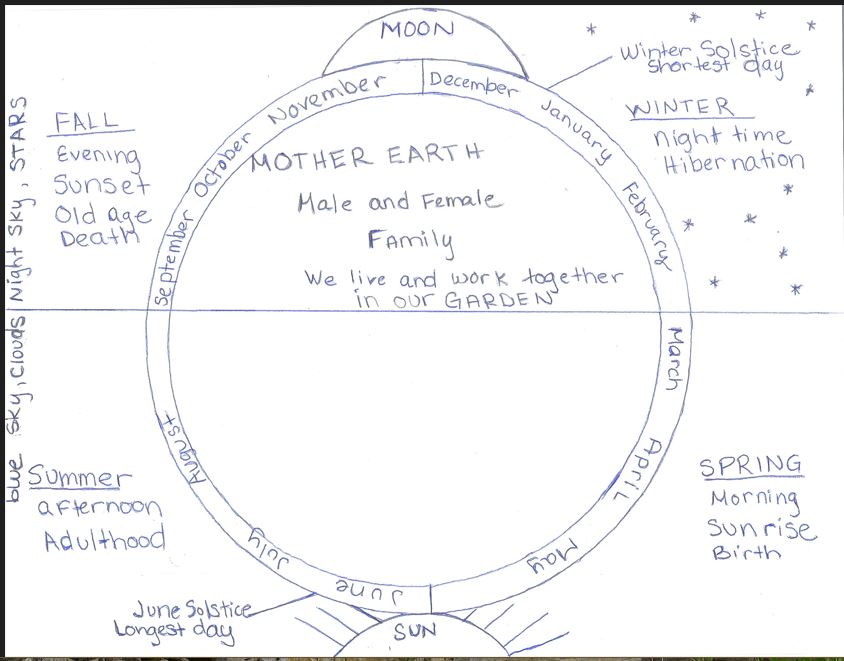 MOON
Winter Solstice
shortest day
November
December
January
February
October
September
FALL
Evening
Sunset
Old age
Death
WINTER
night time
Hibernation
MOTHER EARTH
Male and Female
FAmily
We live and work together
in our GARDEN
blue sky, clouds Night Sky, STARS
March
April
May
June
July
August
Summer
afternoon
Adulthood
SPRING
Morning
Sunrise
Birth
June Solstice
Longest day
SUN